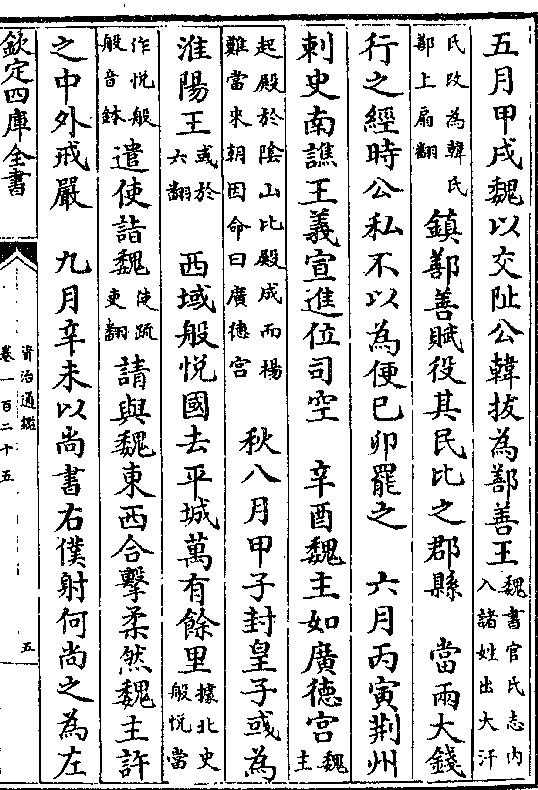 五月甲戌魏以交阯公韓拔為鄯善王魏書官氏志内入諸姓出大汗
氏改為韓氏鄯上扇翻鎮鄯善賦役其民比之郡縣　當兩大錢
行之經時公私不以為便己卯罷之　六月丙寅荆州
刺史南譙王義宣進位司空　辛酉魏主如廣德宮魏主
起殿於陰山比殿成而楊難當來朝因命曰廣德宮　秋八月甲子封皇子彧為
淮陽王彧於六翻　西域般悅國去平城萬有餘里據北史般悅當
作悅般般音鉢遣使詣魏使疏吏翻請與魏東西合擊柔然魏主許
之中外戒嚴　九月辛未以尚書右僕射何尚之為左
欽定四庫全書
資治通鑑
卷一百二十五
五